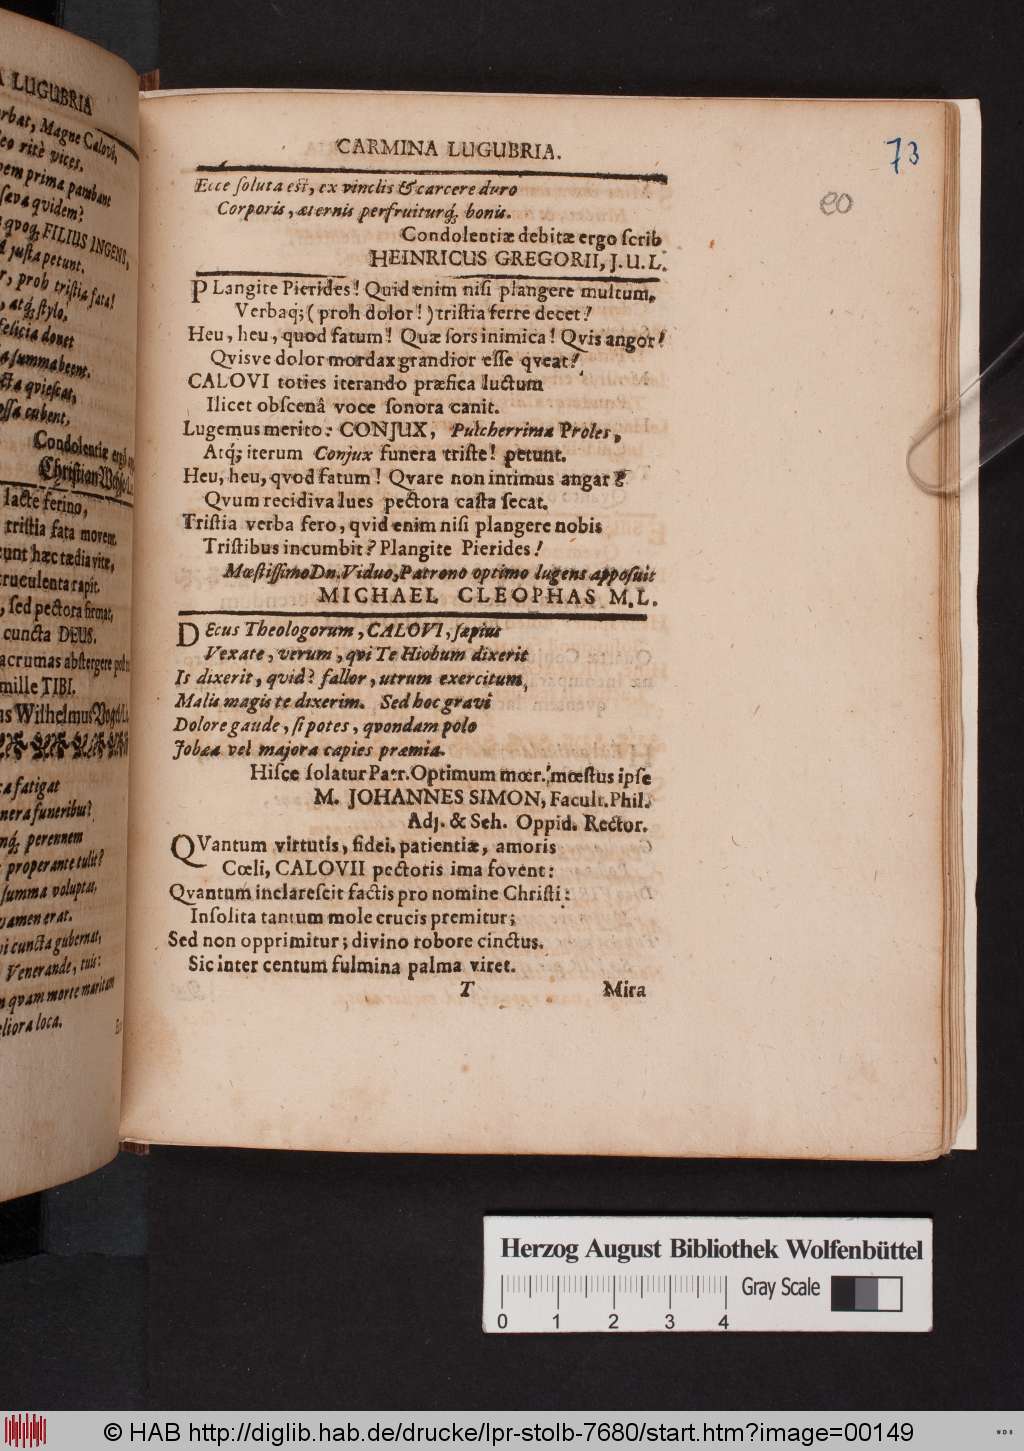 A LUGUBRIA
rbat, Magne Calovi,
eo ritè vices.
em prima parabant
sæva quidem?
quoq; FILIUS INGENS,
justa petunt.
r, proh tristia fata!
, atq; stylo,
felicia donet
a summa beent.
cta quiescat,
ossa cubent,
Condolentiæ ergò
Christian
lacte ferino,
tristia fata movent.
unt hæc tædia vitæ,
truculenta rapit.
, sed pectora firmat,
cuncta DEUS.
acrumas abstergere
mille TIBI.
Wilhelmus
a fatigat
nera funeribus?
nq; perennem
properante tulit?
summa voluptas,
vamen erat.
i cuncta gubernat,
Venerande, tuis:
quam morte maritam
eliora loca.
CARMINA LUGUBRIA.
73
Ecce soluta est, ex vinclis & carcere duro
Corporis, æternis perfruiturq; bonis.
Condolentiæ debitæ ergo scrib
HEINRICUS GREGORII, J. U. L.
PLangite Pierides! Quid enim nisi plangere multum,
Verbaq; (proh dolor!) tristia ferre decet?
Heu, heu, quod fatum! Quæ sors inimica! Qvis angor!
Qvisve dolor mordax grandior esse qveat?
CALOVI toties iterando præfica luctum
Ilicet obscenâ voce sonora canit.
Lugemus merito: CONJUX, Pulcherrima Proles,
Atq; iterum Conjux funera triste! petunt.
Heu, heu, qvod fatum! Qvare non intimus angar?
Qvum recidiva lues pectora casta secat.
Tristia verba fero, qvid enim nisi plangere nobis
Tristibus incumbit? Plangite Pierides!
Mœstissimo Dn. Viduo, Patrono optimo lugens apposuit
MICHAEL CLEOPHAS M. L.
DEcus Theologorum, CALOVI, sæpius
Vexate, verum, qvi Te Hiobum dixerit
Is dixerit, qvid? fallor, utrum exercitum,
Malis magis te dixerim. Sed hoc gravi
Dolore gaude, si potes, qvondam polo
Jobæa vel majora capies præmia.
Hisce solatur Patr. Optimum mœr. mœstus ipse
M. JOHANNES SIMON, Facult. Phil.
Adj. & Sch. Oppid. Rector.
QVantum virtutis, fidei, patientiæ, amoris
Cœli, CALOVII pectoris ima fovent:
Qvantum inclarescit factis pro nomine Christi:
Insolita tantum mole crucis premitur;
Sed non opprimitur; divino robore cinctus.
Sic inter centum fulmina palma viret.
T Mira
Herzog August Bibliothek Wolfenbüttel
Gray Scale
0 1 2 3 4
© HAB http://diglib.hab.de/drucke/lpr-stolb-7680/start.htm?image=00149